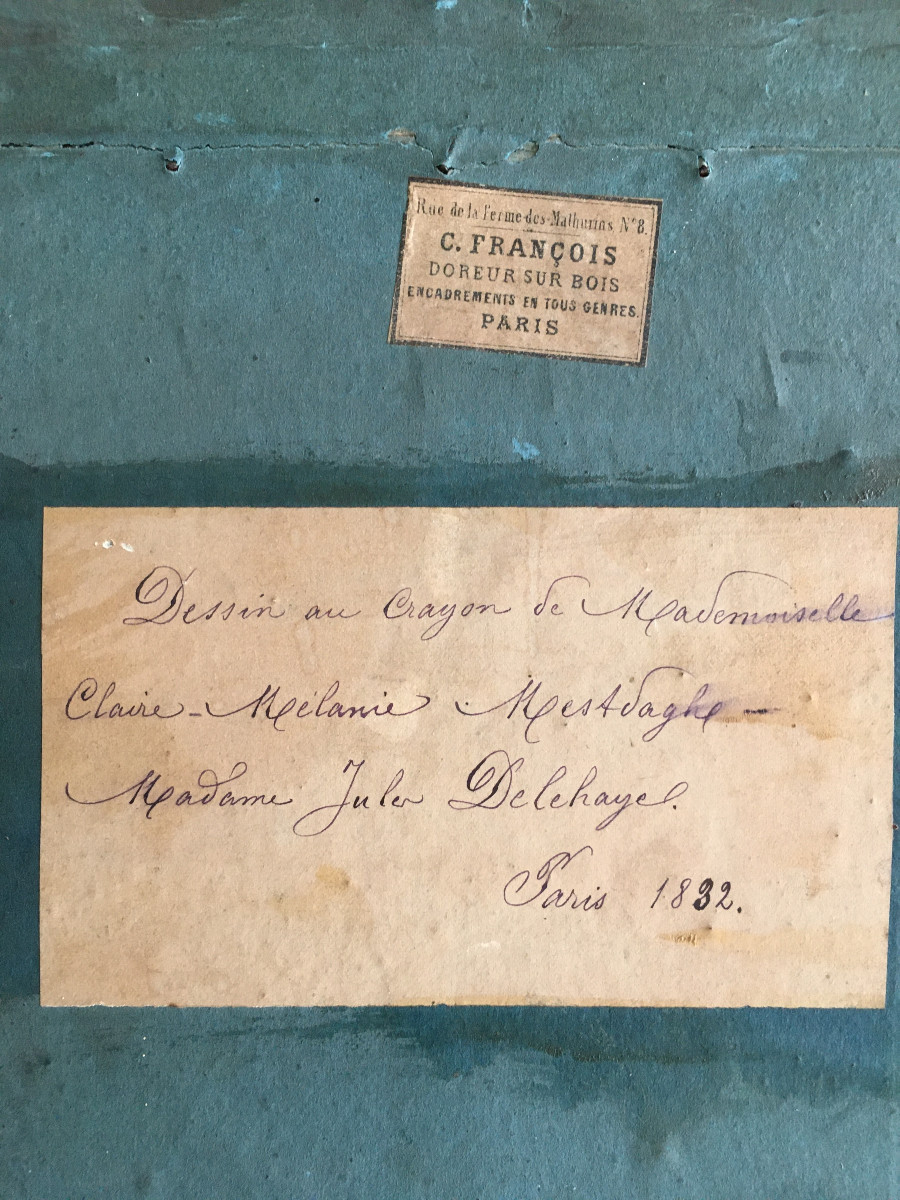 Rue de la Ferme-des-Mathurins N° 8.
C. FRANÇOIS
DOREUR SUR BOIS
ENCADREMENTS EN TOUS GENRES.
PARIS
Dessin au Crayon de Mademoiselle
Claire-Mélanie Mestdaghe-
Madame Jules Delehaye.
Paris 1832.